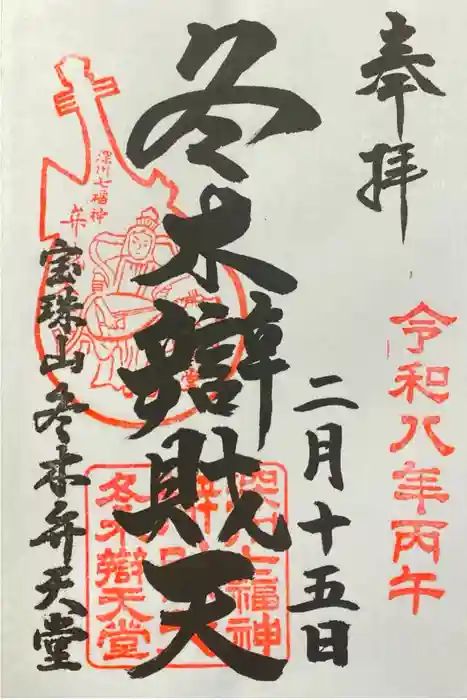 奉拝
令和八年丙午
二月十五日
冬木辯財天
深川七福神
弁
宝珠山冬木弁天堂
七福神
冬木辯天堂